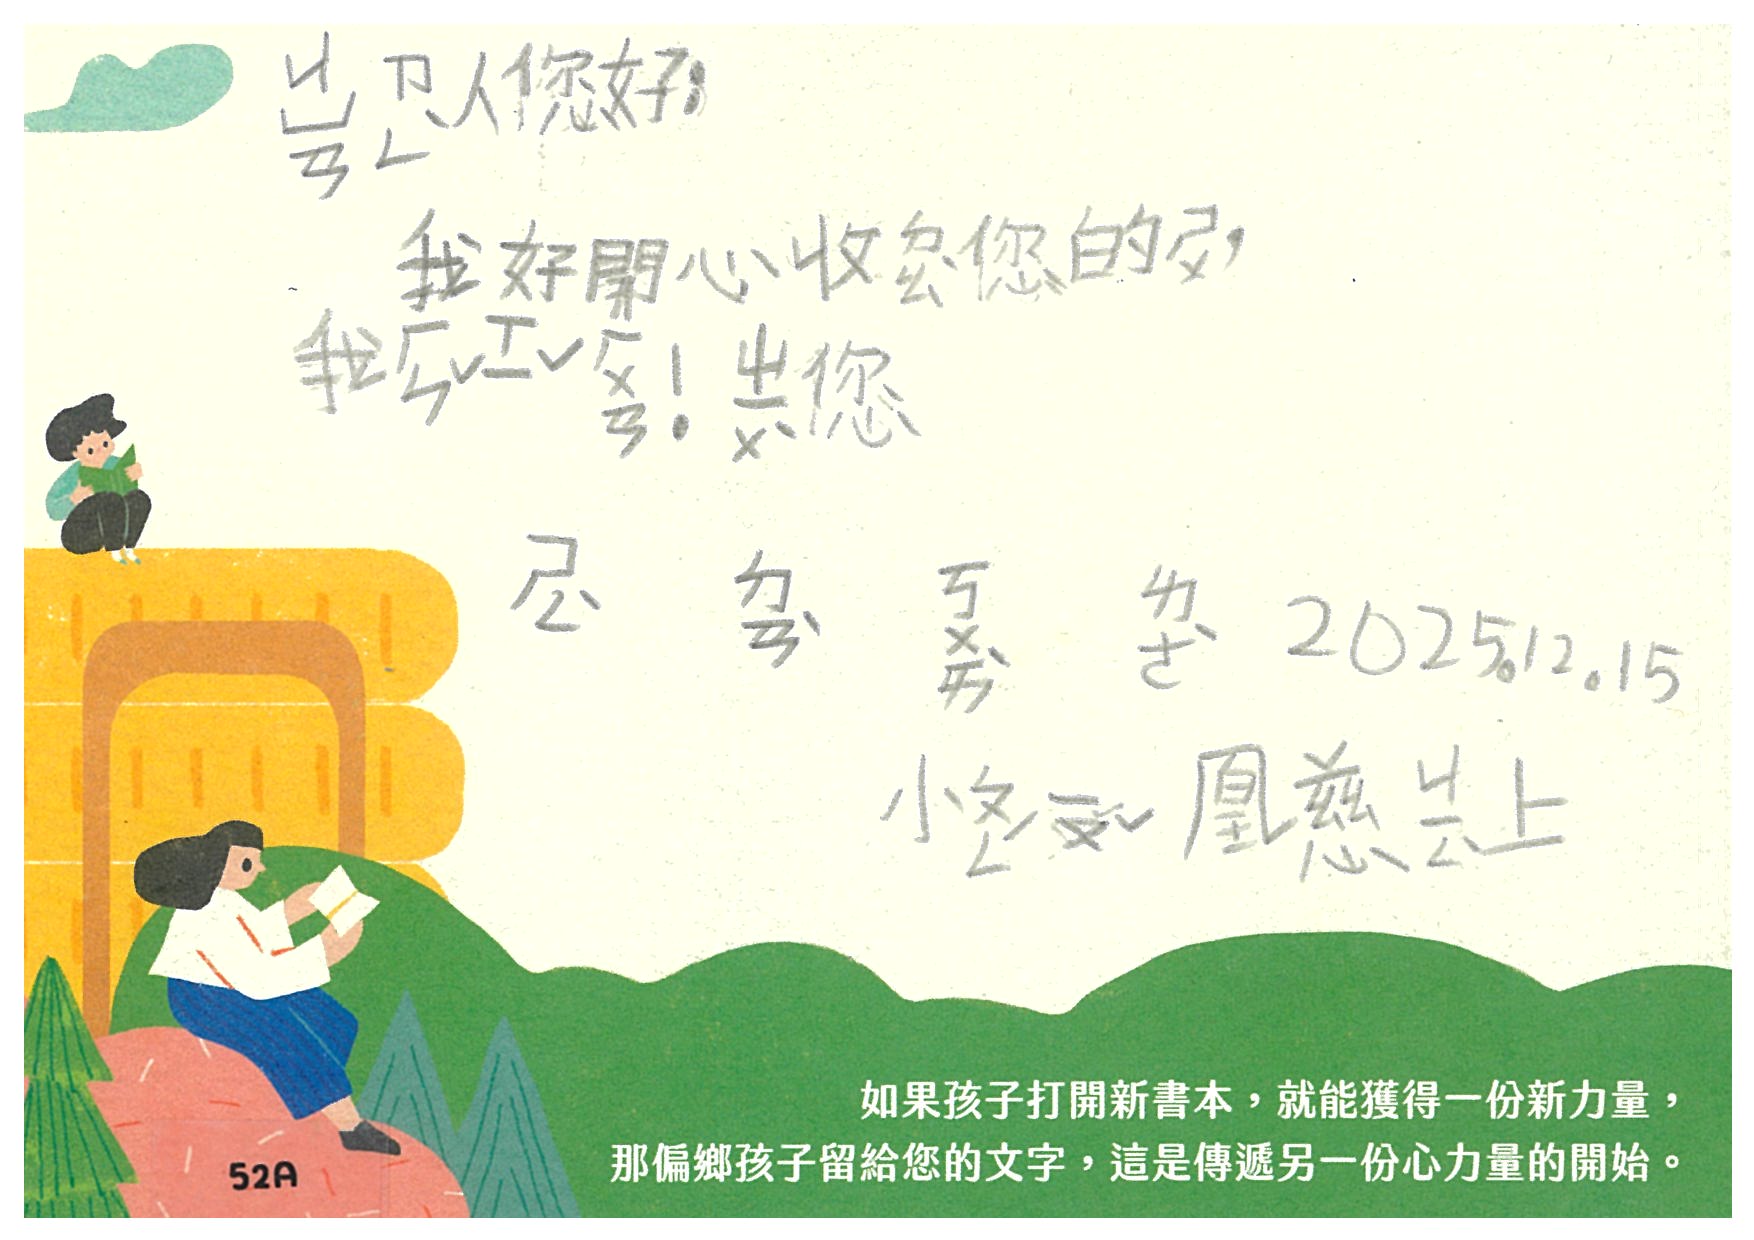 ㄐㄩㄢㄖㄣˋ人您好:
我好開心收ㄉㄠˋ您的ㄕㄨ,
我ㄏㄣˇㄒㄧˇㄏㄨㄢ!ㄓㄨˋ您
ㄕㄥˋ ㄉㄢˋ ㄎㄨㄞˋ ㄌㄜˋ 2025.12.15
小ㄆㄥˊㄧㄡˇ 凰慈ㄐㄧㄥˋ上
如果孩子打開新書本,就能獲得一份新力量,
那偏鄉孩子留給您的文字,這是傳遞另一份心力量的開始。
52A